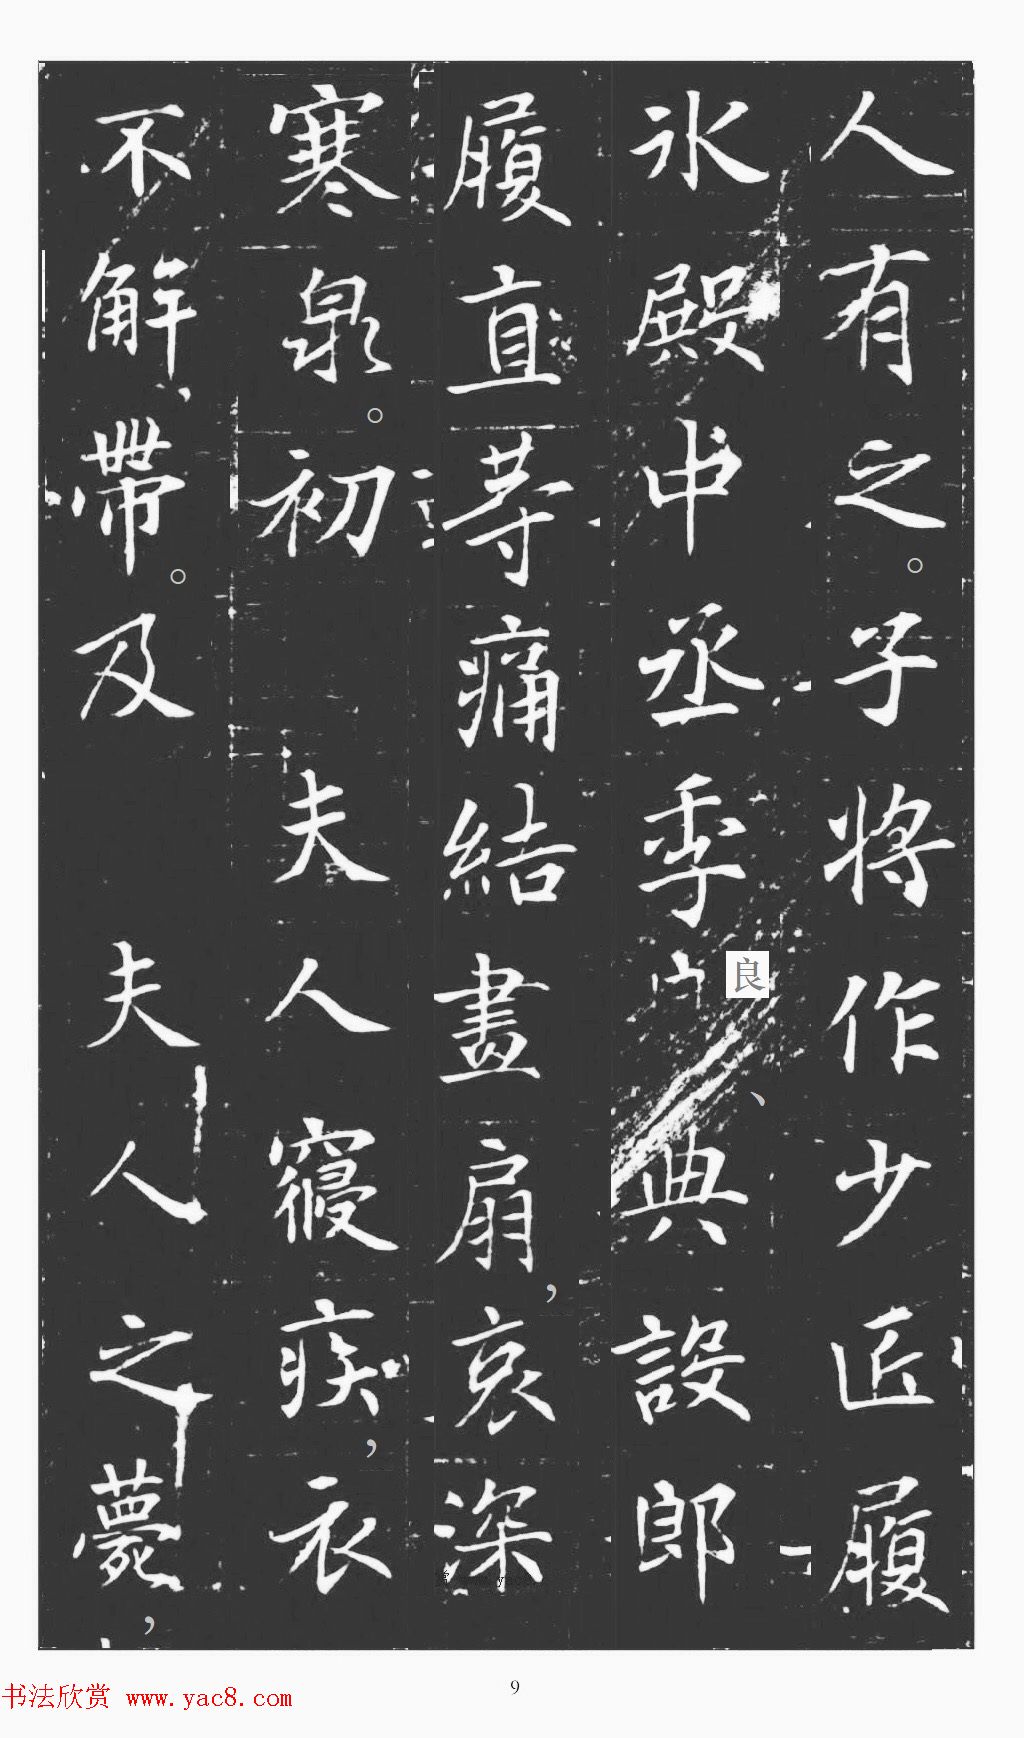 人有之。子將作少匠履
氷殿中丞季良、典設郎
履直等痛結畫扇，哀深
寒泉。初夫人寝疾，衣
不解帶。及夫人之薨，
书法欣赏 www.yac8.com
9